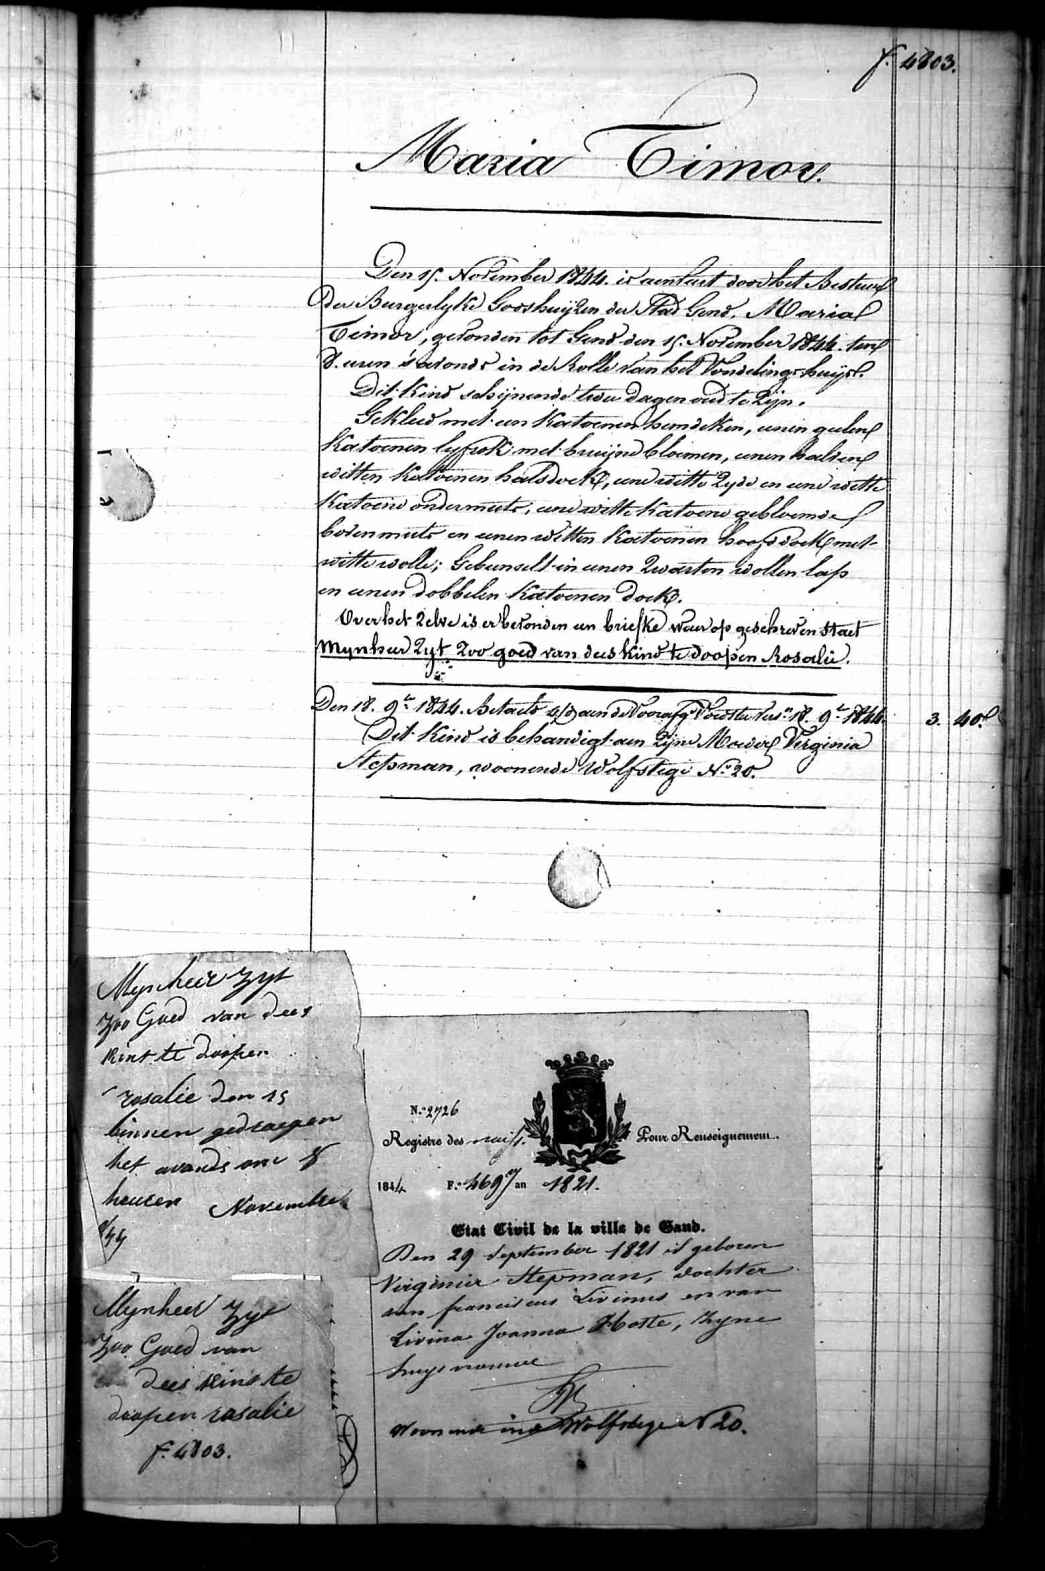 f. 4803.
Maria Timor.
Den 15. November 1844. is aenveert door het Bestuur
der Burgerlyke Godshuijzen der Stad Gend, Maria
Timor, gevonden tot Gend den 15. November 1844. ten
8. uren 's avonds in de Rolle van het Vondelingshuijs.
Dit kind schijnende twee dagen oud te zijn.
Gekleed met een katoenen hemdeken, eenen geelen
katoenen lyfrok met bruijne bloemen, eenen halven
witten katoenen halsdoek, eene witte zyde en eene witte
katoene ondermuts, eene witte katoene gebloemde
bovenmuts en eenen witten katoenen hoofddoek met
witte wolle; Gebunselt in eenen zwarten wollen lap
en eenen dobbelen katoenen doek.
Over het zelve is er bevonden een briefke waer op geschreven staet
Mynheer zyt zoo goed van dees kind te doopen Rosalie.
Den 18. 9.re 1844. Betaelt aen de Voedster 18. 9.re 1844. 3. 40.
Dit kind is behandigt aen zijne Moeder Virginia
Stepman, woonende Wolfstege N.o 20.
Mynheer zyt
zoo Goed van dees
kint te doopen
rosalie den 15
binnen gedraegen
het avonds om 8
heuren Novembre
1844
Mynheer zyt
zoo Goed van
dees kind te
doopen rosalie
f. 4803.
N.o 2726
Registre des naiss. Pour Renseignement.
1844 F.o 469 an 1821.
Etat Civil de la ville de Gand.
Den 29 september 1821 is geboren
Virginie Stepman, dochter
van franciscus Livinus en van
Livina Joanna Hoste, zyne
huysvrouwe
Woonende in de Wolfstege N 20.